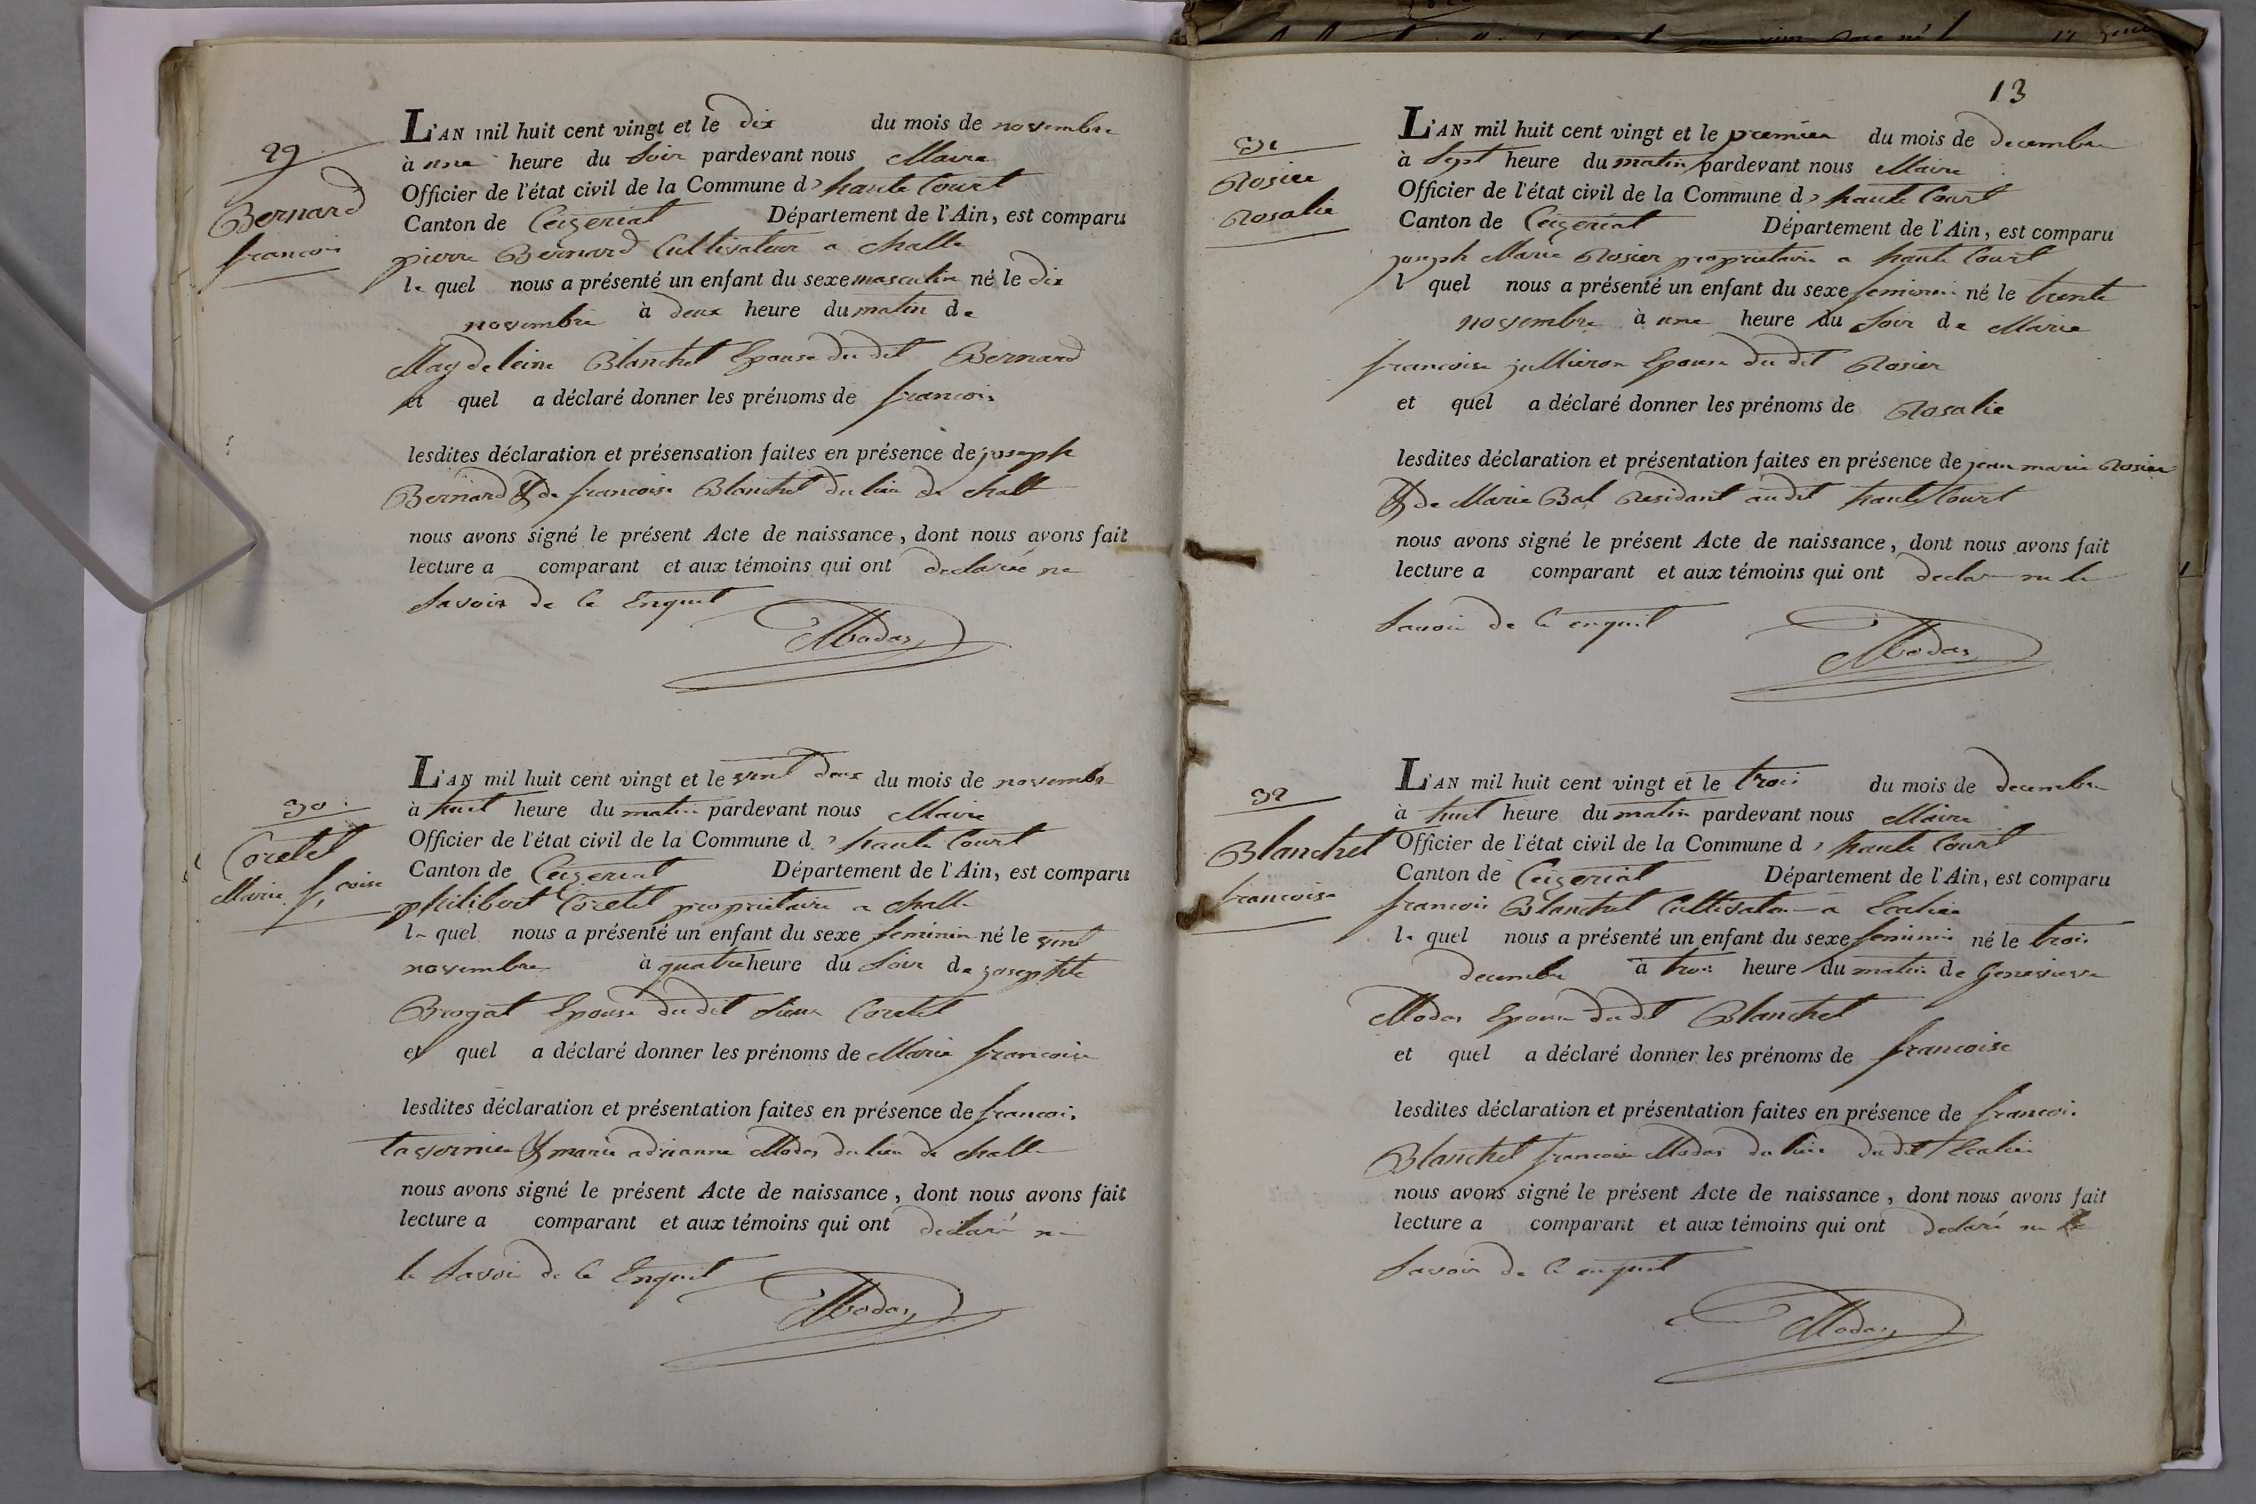 29
Bernard
francois
L'AN mil huit cent vingt et le dix du mois de novembre
à une heure du soir pardevant nous Maire
Officier de l'état civil de la Commune d'hautecourt
Canton de Ceizeriat Département de l'Ain, est comparu
pierre Bernard Cultivateur a challe
le quel nous a présenté un enfant du sexe masculin né le dix
novembre à deux heure du matin de
Magdeleine Blanchet Epouse du dit Bernard
et quel a déclaré donner les prénoms de francois
lesdites déclaration et présensation faites en présence de joseph
Bernard & de francoise Blanchet du lieu de challe
nous avons signé le présent Acte de naissance, dont nous avons fait
lecture a comparant et aux témoins qui ont declarée ne
Savoir de ce Enquit
Modas
30
Coretet
Marie f,coise
L'AN mil huit cent vingt et le vint deux du mois de novembre
à huit heure du matin pardevant nous Maire
Officier de l'état civil de la Commune d'hautecourt
Canton de Ceizeriat Département de l'Ain, est comparu
philibert Coretet proprietaire a challe
le quel nous a présenté un enfant du sexe feminin né le vint
novembre à quatre heure du soir de josephte
Brogat Epouse du dit sieur Coretet
et quel a déclaré donner les prénoms de Marie francoise
lesdites déclaration et présentation faites en présence de francois
tavernier & marie adrianne Modas du lieu de challe
nous avons signé le présent Acte de naissance, dont nous avons fait
lecture a comparant et aux témoins qui ont declaré ne
le Savoir de ce Enquit
Modas
13
31
Rosier
Rosalie
L'AN mil huit cent vingt et le premier du mois de decembre
à Sept heure du matin pardevant nous Maire
Officier de l'état civil de la Commune d'hautecourt
Canton de Ceizeriat Département de l'Ain, est comparu
joseph Marie Rosier proprietaire a hautecourt
l quel nous a présenté un enfant du sexe feminin né le trente
novembre à une heure du soir de Marie
francoise jullieron Epouse du dit Rosier
et quel a déclaré donner les prénoms de Rosalie
lesdites déclaration et présentation faites en présence de jean marie Rosier
& de Marie Bal Residant audit hautecourt
nous avons signé le présent Acte de naissance, dont nous avons fait
lecture a comparant et aux témoins qui ont declar ne le
Savoir de ce enquit
Modas
32
Blanchet
francoise
L'AN mil huit cent vingt et le trois du mois de decembre
à huit heure du matin pardevant nous Maire
Officier de l'état civil de la Commune d'hautecourt
Canton de Ceizeriat Département de l'Ain, est comparu
francois Blanchet Cultivateur a
le quel nous a présenté un enfant du sexe feminin né le trois
decembre à trois heure du matin de Genevieve
Modas Epouse du dit Blanchet
et quel a déclaré donner les prénoms de francoise
lesdites déclaration et présentation faites en présence de francois
Blanchet francoise Modas du lieu du dit
nous avons signé le présent Acte de naissance, dont nous avons fait
lecture a comparant et aux témoins qui ont declaré ne le
Savoir de ce enquit
Modas